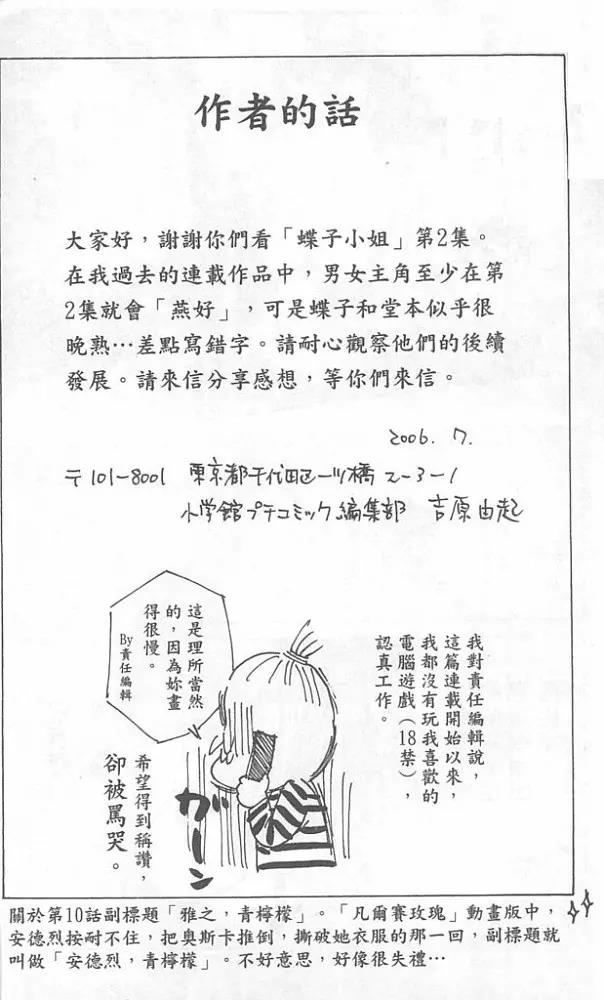 作者的話
大家好，謝謝你們看「蝶子小姐」第2集。
在我過去的連載作品中，男女主角至少在第
2集就會「燕好」，可是蝶子和堂本似乎很
晚熟…差點寫錯字。請耐心觀察他們的後續
發展。請來信分享感想，等你們來信。
2006. 7.
〒101-8001 東京都千代田区一ツ橋2-3-1
小学館プチコミック編集部 吉原由起
我對責任編輯說，
這篇連載開始以來，
我都沒有玩我喜歡的
電腦遊戲（18禁），
認真工作。
這是理所當然
的，因為妳畫
得很慢。
By責任編輯
ガーン
希望得到稱讚，
卻被罵哭。
關於第10話副標題「雅之，青檸檬」。「凡爾賽玫瑰」動畫版中，
安德烈按耐不住，把奧斯卡推倒，撕破她衣服的那一回，副標題就
叫做「安德烈，青檸檬」。不好意思，好像很失禮…